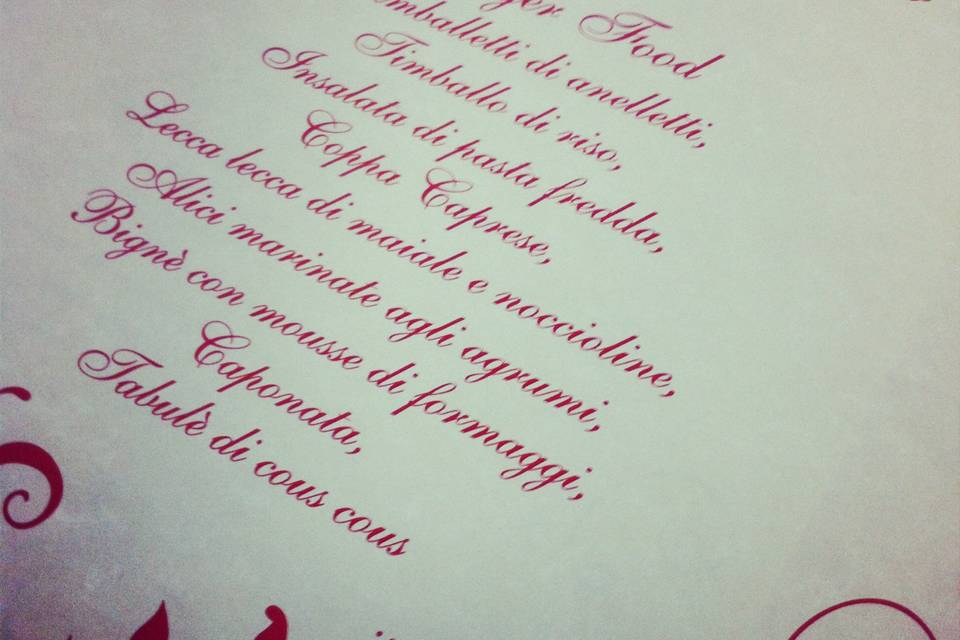 Food
di anelletti,
Timballo di riso,
Insalata di pasta fredda,
Coppa Caprese,
Lecca lecca di maiale e noccioline,
Alici marinate agli agrumi,
Bignè con mousse di formaggi,
Caponata,
Tabulè di cous cous